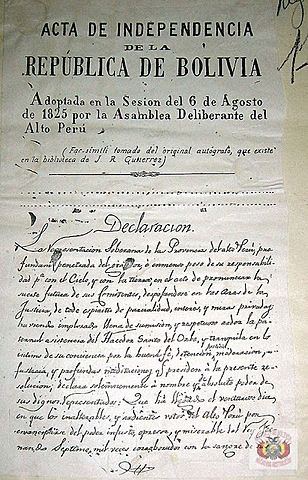 ACTA DE INDEPENDENCIA
DE LA
REPÚBLICA DE BOLIVIA
Adoptada en la Sesion del 6 de Agosto
de 1825 por la Asamblea Deliberante del
Alto Perú
(Fac-símili tomado del original autógrafo, que existe
en la biblioteca de J. R. Gutierrez)
Declaracion.
La Representacion Soberana de las Provincias del alto Perú, pro
fundamente penetrada del grandor, é inmenso peso de su responsabi
lidad pa. con el Cielo, y con la tierra, en el acto de pronunciar la
suerte futura de sus Comitentes, despojandose en las Aras de la
Justicia, de todo espiritu de parcialidad, interes, y miras privadas;
habiendo implorado, llena de sumision, y respetuoso ardor la pa
ternal asistencia del Hacedor Santo del Orbe, y tranquila en lo
intimo de su conciencia por la buena fé, detencion, moderacion,
justicia, y profundas meditaciones, que presiden á la presente re
solucion, declara solemnemente á nombre y absoluto poder de
sus dignos representados: Que ha llegado el venturoso dia,
en que los inalterables, y ardientes votos del Alto Perú por
emanciparse del poder injusto, opresor, y miserable del Rey Fer
nando Septimo, mil veces corroborados con la sangre de su